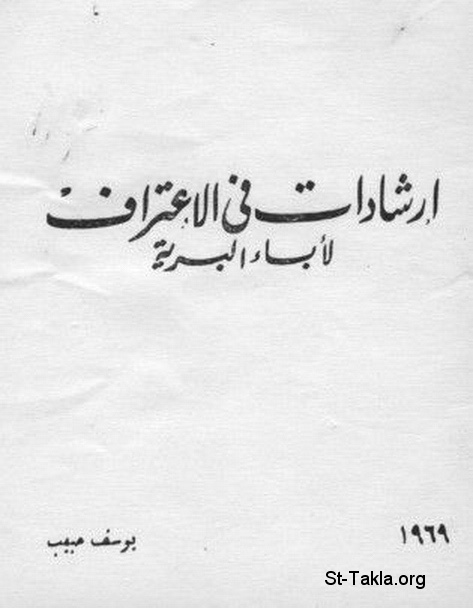 ارشادات فى الاعتراف
لأباء البرية
١٩٦٩
يوسف حبيب
St-Takla.org